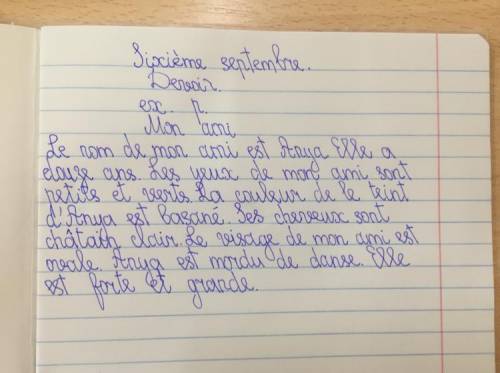 Sixième septembre.
Devoir.
ex. p.
Mon ami
Le nom de mon ami est Anya Elle a
douze ans. Les yeux de mon ami sont
petits et verts. La couleur de le teint
d'Anya est Basané. Ses cheveux sont
châtain clair. Le visage de mon ami est
ovale. Anya est mordu de danse. Elle
est forte et grande.